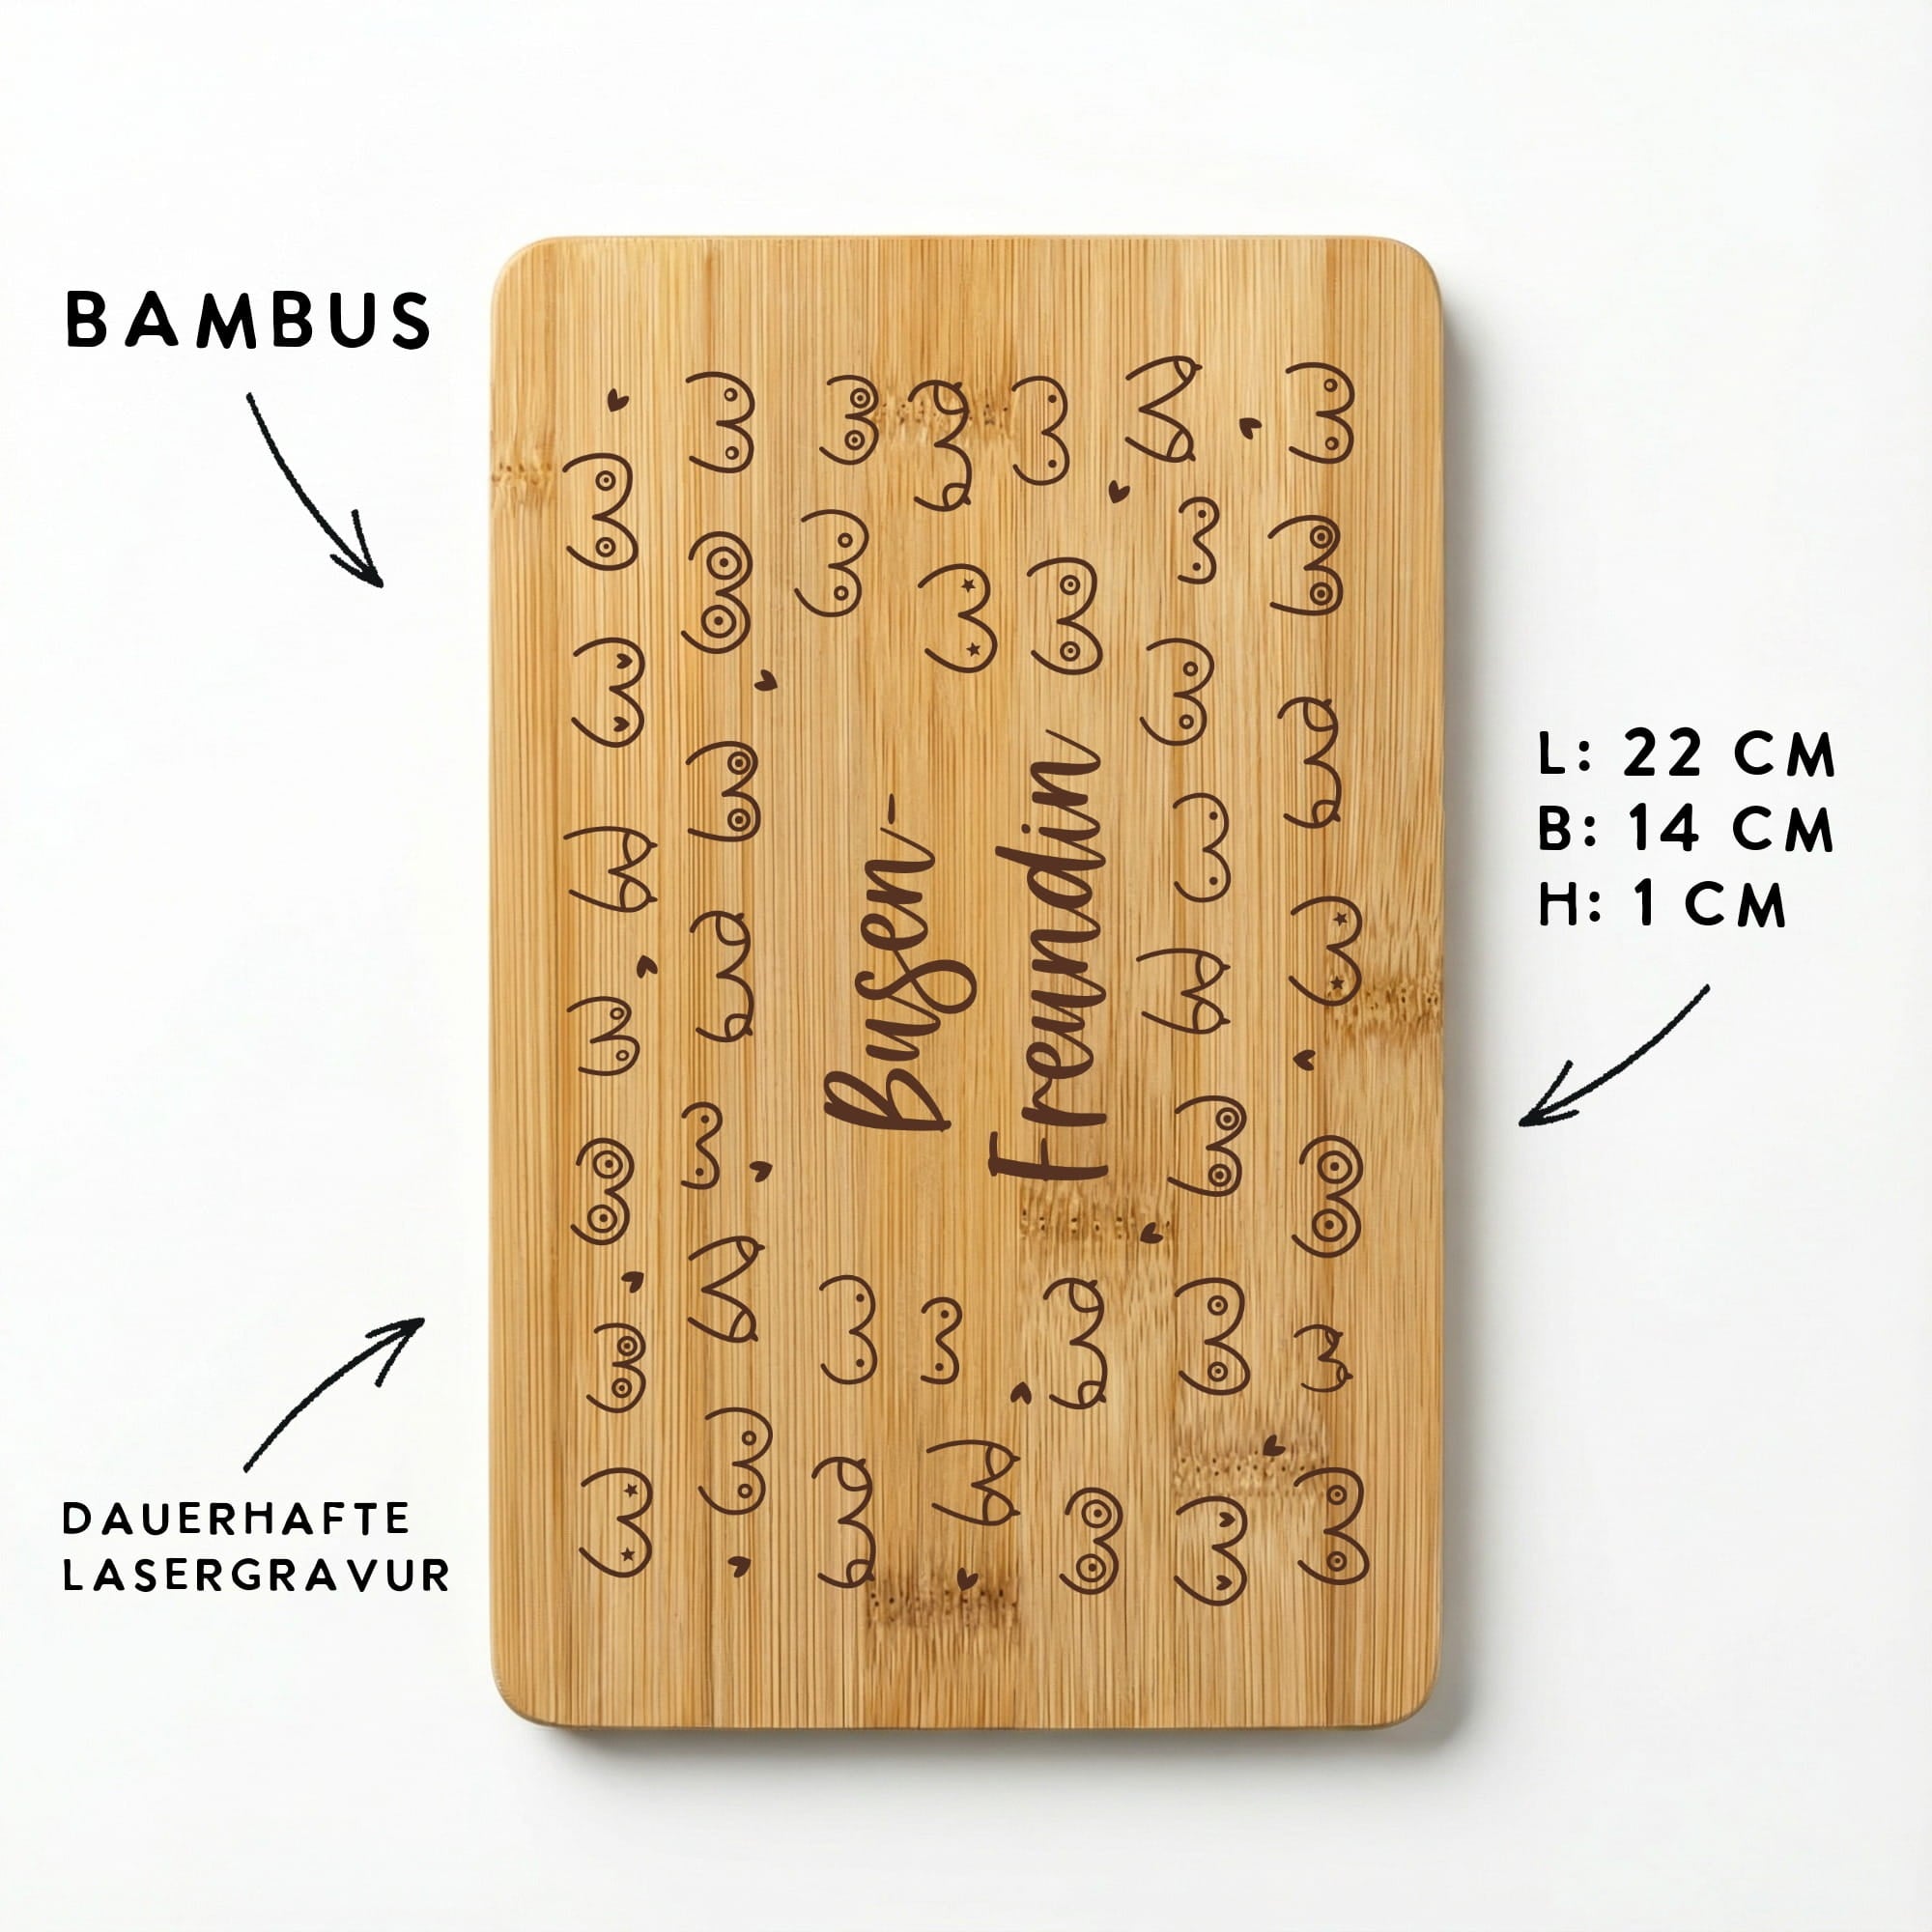 BAMBUS
Busen-
Freundin
L: 22 CM
B: 14 CM
H: 1 CM
DAUERHAFTE
LASERGRAVUR